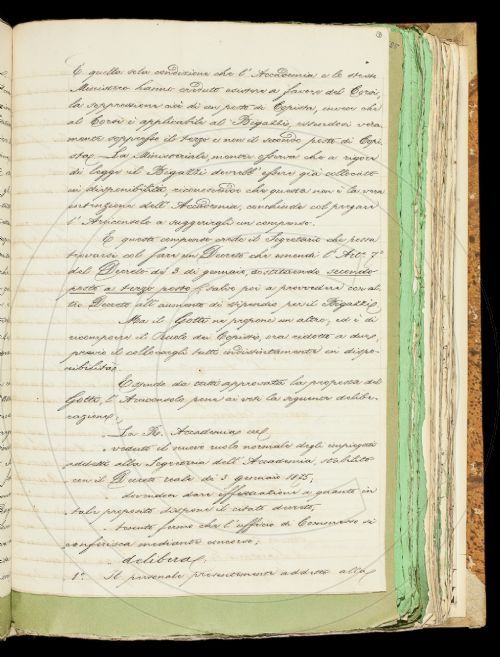 E quella sola condizione che l'Accademia e lo stesso
Ministero hanno creduto esistere a favore del Corsi,
la soppressione cioè di un posto di Copista, invece che
al Corsi è applicabile al Bigazzi, essendosi vera
mente soppresso il terzo e non il secondo posto di Copi
sta. La Ministeriale, mentre osserva che a rigore
di legge il Bigazzi dovrebb'essere già collocato
in disponibilità, riconoscendo che questa non è la vera
intenzione dell'Accademia, conchiude col pregare
l'Arciconsolo a suggerirgli un compenso.
E questo compenso crede il Segretario che possa
trovarsi col fare un Decreto che emendi l'Art.º 7º
del Decreto di 3 di gennaio, sostituendo secondo
posto a terzo posto, salvo poi a provvedere con al
tro Decreto all'aumento di stipendio per il Bigazzi.
Ma il Gotti ne propone un altro, ed è di
ricomporre il ruolo dei Copisti, ora ridotto a due,
previo il collocargli tutti indistintamente in dispo
nibilità.
Essendo da tutti approvata la proposta del
Gotti, l'Arciconsolo pone ai voti la seguente delibe
razione:
La R. Accademia ec.
veduto il nuovo ruolo normale degli impiegati
addetti alla Segreteria dell'Accademia, stabilito
con il Decreto reale di 3 gennaio
dovendosi dare effettuazione a quanto in
tale proposito dispone il citato decreto,
tenuto fermo che l'ufficio di Commesso si
conferisca mediante concorso;
delibera
1º. Il personale presentemente addetto alla